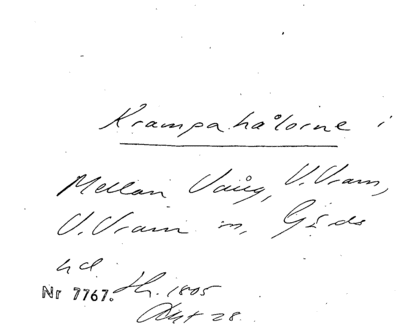 Krampahålorne i
Mellan Vång, V. Vram,
V. Vram sn, Gärds
hd.
Nr 7767. Sk. 1805
28.